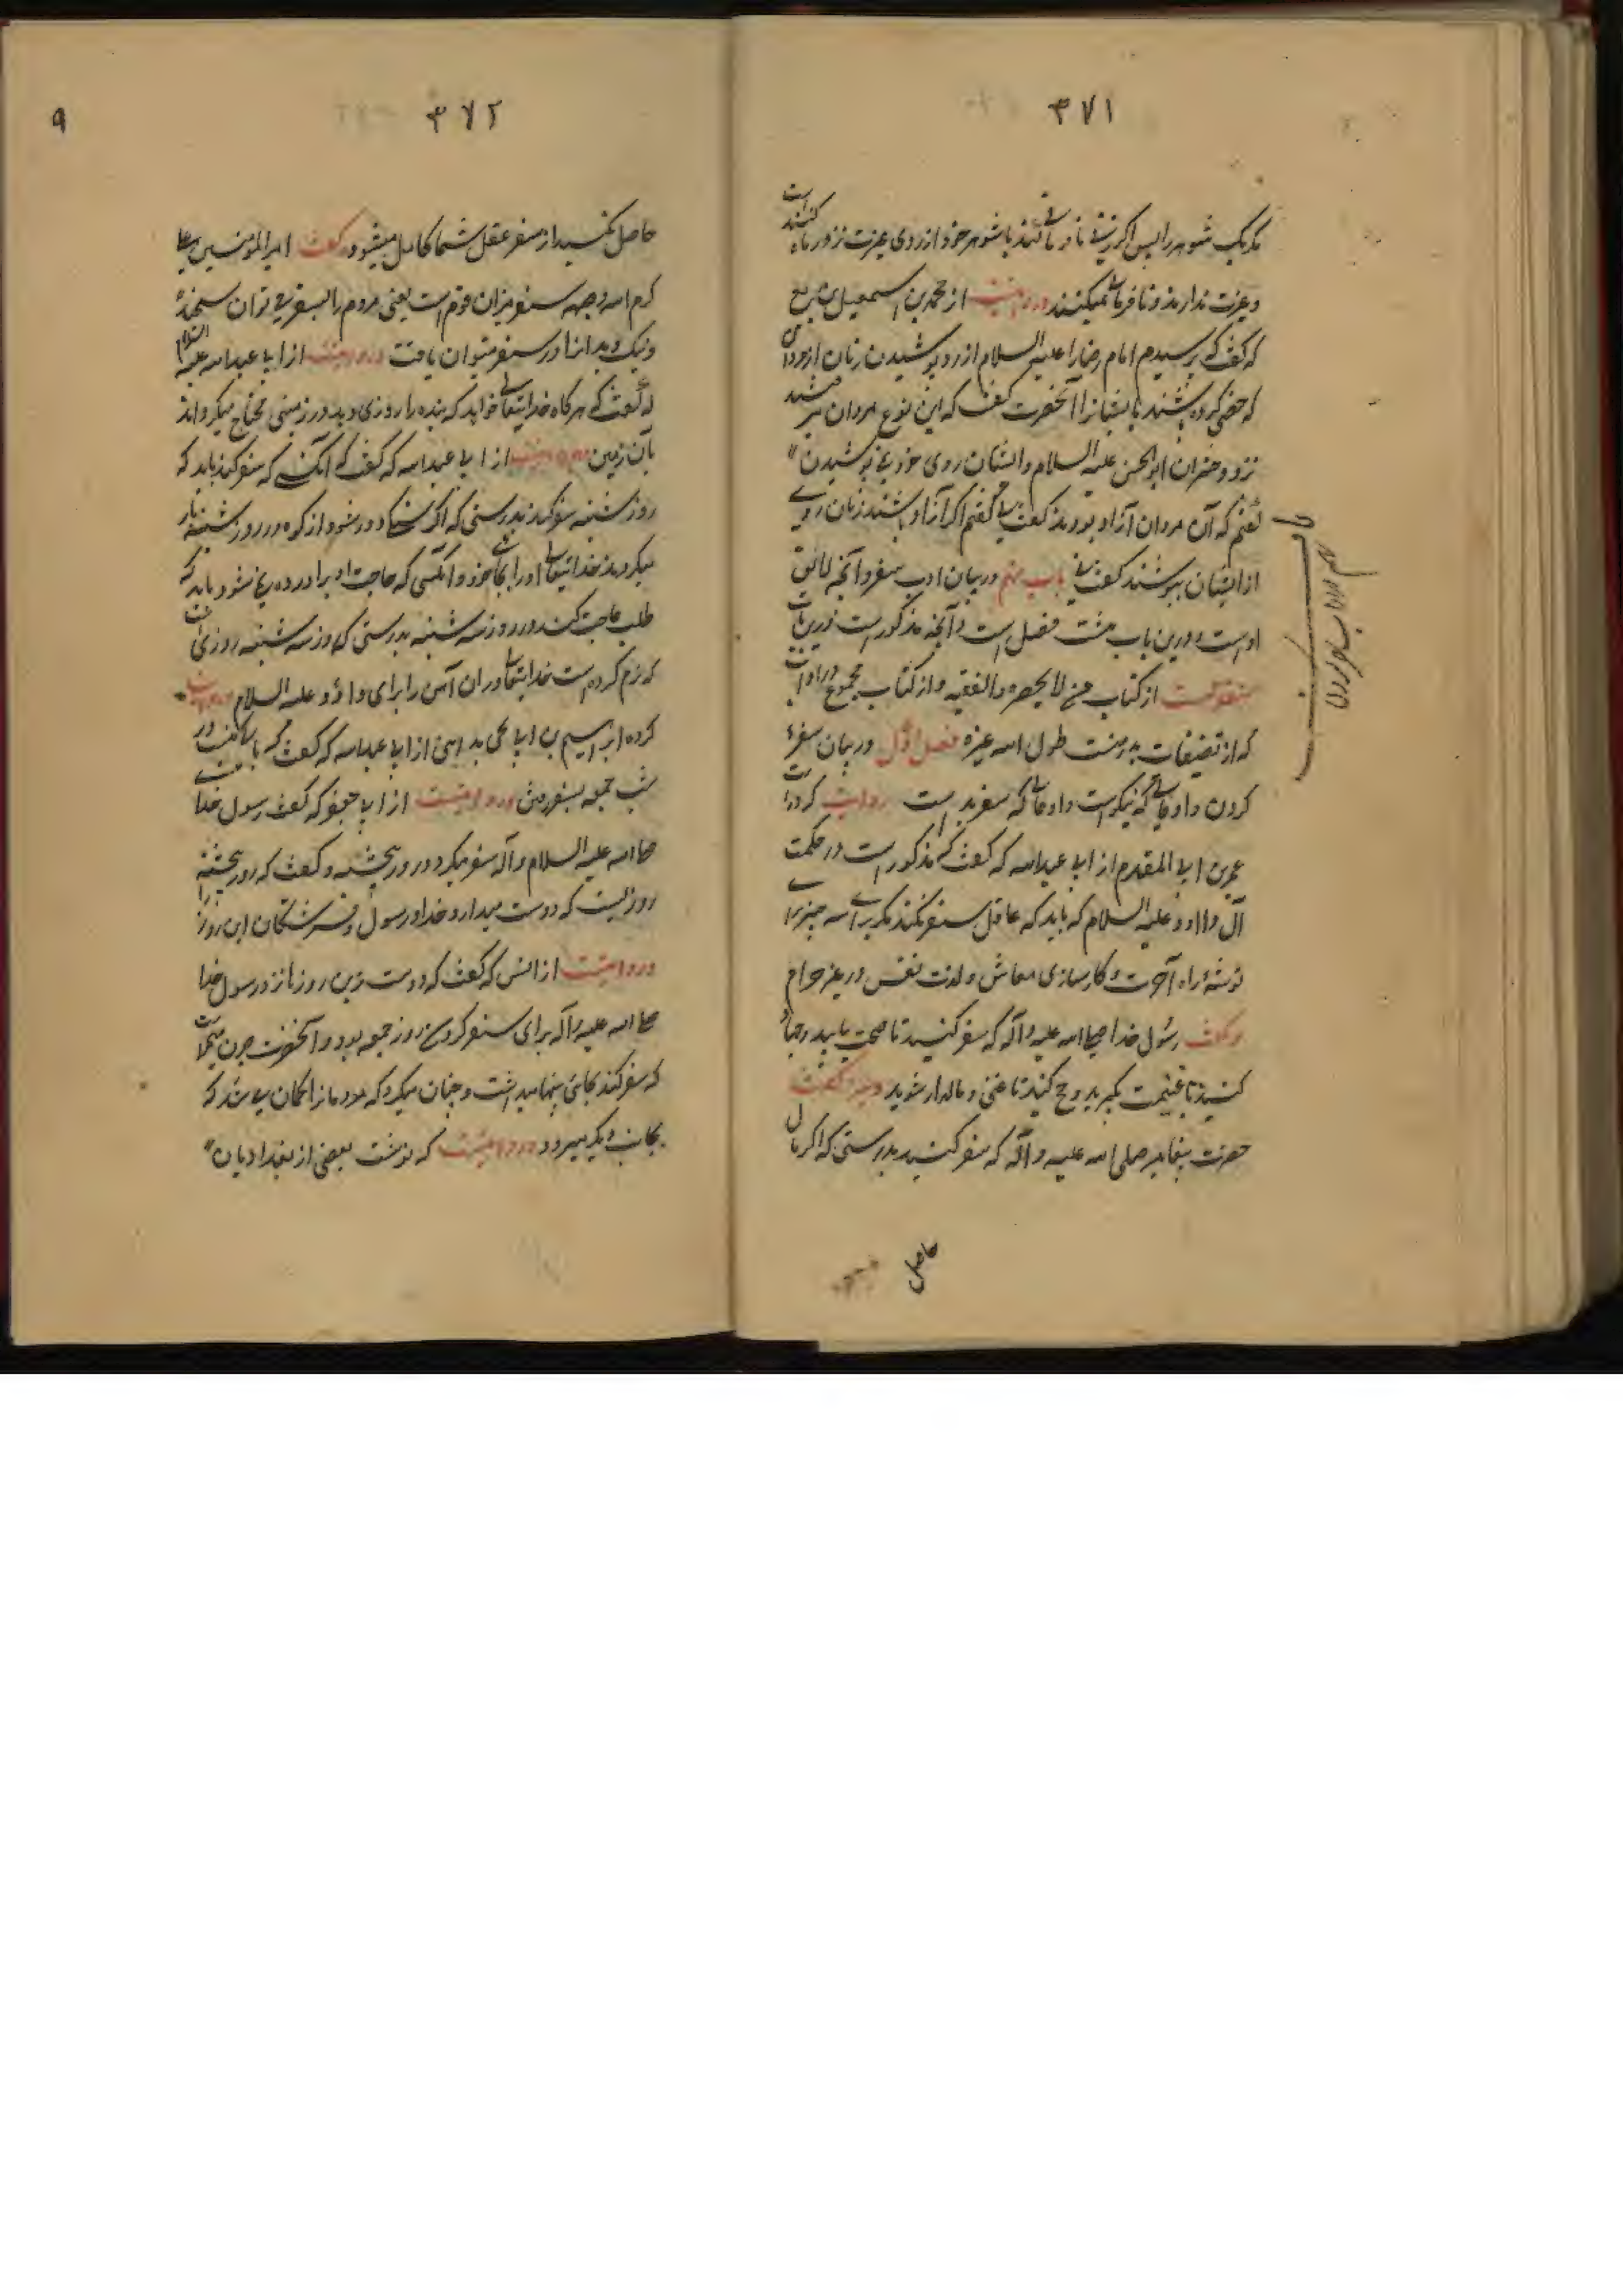 ۳۷۱
مکر یک شوهر را پس اکر زنی نافرمانی کند با شوهر خود از روی عزت نزد
و عزت ندارند و نافرمانی میکنند و روایتست از محمد بن اسمعیل بن بزیع
که گفت که پرسیدم امام رضا را علیه السلام از رو پوشیدن زنان از مردانی
که خصی کرده باشند ایشانرا آنحضرت گفت که این نوع مردان
نزد دختران ابو الحسن علیه السلام و ایشان روی خود نمی پوشیدن
گفتم که آن مردان آزاد بودند گفت نی گفتم اکر آزاد باشند زنان روی
از ایشان بپوشند گفت نی باب نهم در بیان ادب سفر و آنچه لائق
اوست و درین باب هشت فصل است و آنچه مذکور است درین باب
منقولست از کتاب من لا یحضره الفقیه و از کتاب مجموع
که از تصنیفات پدر منست طول الله عمره فصل اول در بیان سفر
کردن و اوقاتی که نیکوست و اوقاتی که سفر بد است روایت کرده است
عمرو بن ابی المقدم از ابی عبدالله که گفت که مذکور است در حکمت
آل داود علیه السلام که باید که عاقل سفر نکند مکر برای سه چیز برای
توشهٔ راه آخرت و کارسازی معاش و لذت نفس در غیر حرام
و گفت رسول خدا صلی الله علیه و آله که سفر کنید تا صحت یابید و جهاد
کنید تا غنیمت بکیرید و حج کنید تا غنی و مالدار شوید و نیز گفت
حضرت پیغامبر صلی الله علیه و آله که سفر کنید بدرستی که اکر مال
حاصل
سفر کردن
۳۷۲
۹
حاصل نکنید از سفر عقل شما کامل میشود و گفت امیر المؤمنین علی
کرم الله وجهه سفر میزان قوم است یعنی مردم را بسفر می توان سنجید
و نیک و بد را در سفر میتوان یافت و روایتست از ابی عبدالله علیه السلام
که گفت که هرکاه خدایتعالی خواهد که بنده را روزی دهد در زمینی محتاج میکرداند
بآن زمین و روایتست از ابی عبدالله که گفت که آنکسی که سفر کند باید که
روز شنبه سفر کند بدرستی که اکر سنکی دور شود از کوه در روز شنبه باز
میکرداند خدایتعالی او را بجای خود و آنکسی که حاجت او برآورده نمی شود باید که
طلب حاجت کند در روز سه شنبه بدرستی که روز سه شنبه روزی است
که نرم کرده است خدایتعالی در آن آهن را برای داؤد علیه السلام و روایت
کرده ابراهیم بن ابی یحیی مدینی از ابی عبدالله که گفت که باکی نیست در
شب جمعه بسفر رفتن و روایتست از ابی جعفر که گفت رسول خدای
صلی الله علیه السلام و آله سفر میکرد در روز پنجشنبه و گفت که روز پنجشنبه
روزیست که دوست میدارد خدا و رسول و فرشتکان این روز را
و روایتست از انس که گفت که دوست ترین روزها نزد رسول خدا
صلی الله علیه و آله برای سفر کردن روز جمعه بود و آنحضرت چون میخواست
که سفر کند بجائی پنهان میداشت و چنان میکرد که مردمانرا کمان می شد که
بجانب دیکر میرود و روایتست که نوشت بعضی از بغدادیان